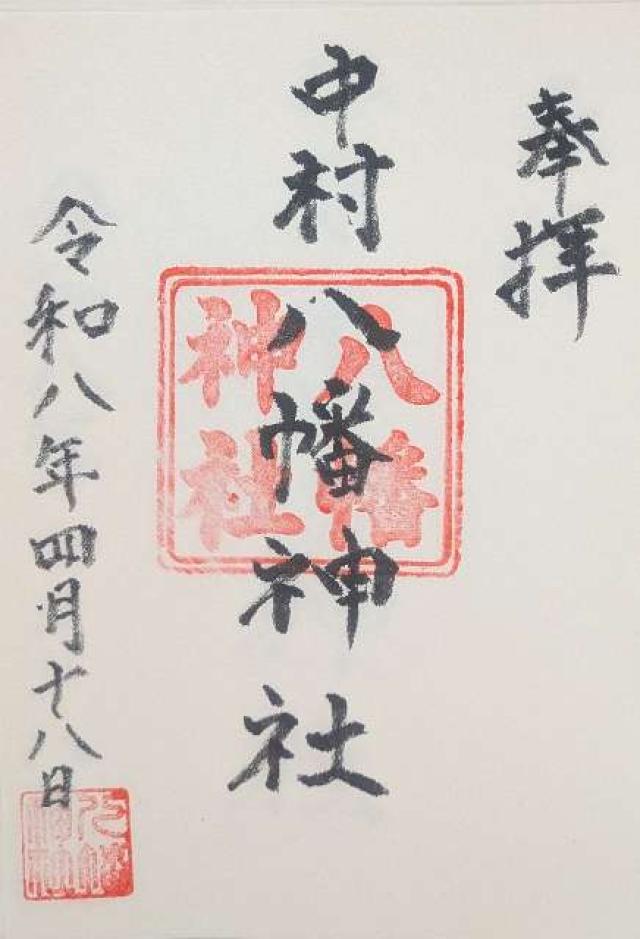 奉拝
中村八幡神社
八幡
神社
令和八年四月十八日